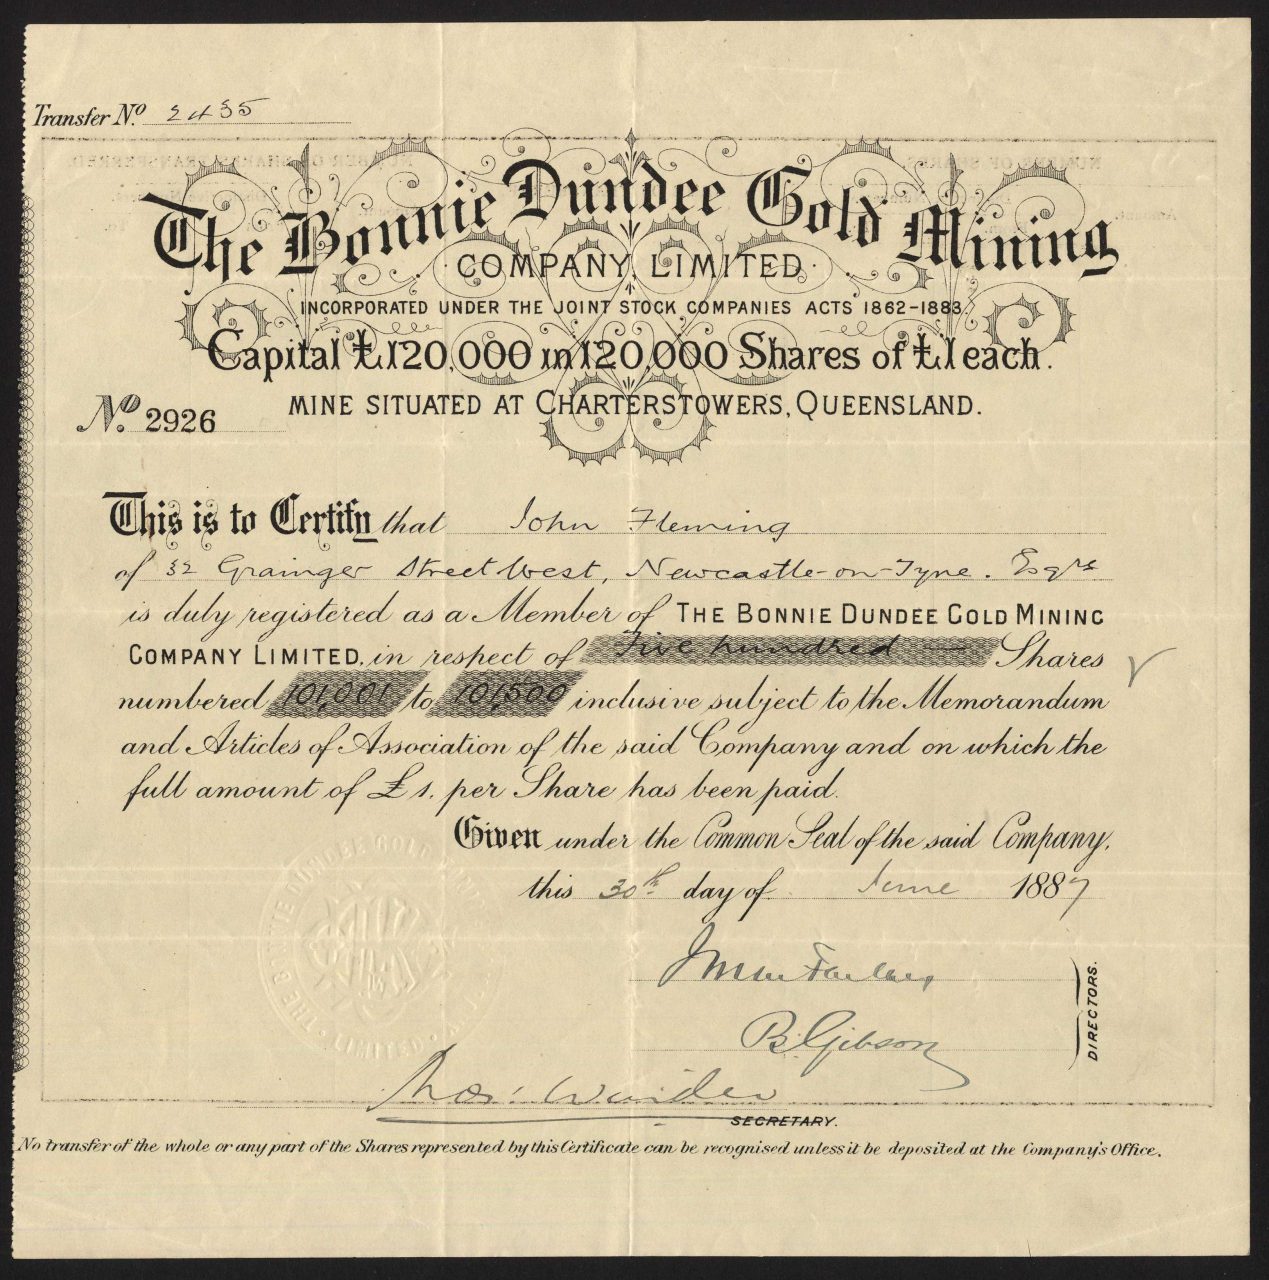 Transfer No. 2435
The Bonnie Dundee Gold Mining
COMPANY, LIMITED.
INCORPORATED UNDER THE JOINT STOCK COMPANIES ACTS 1862-1883.
Capital £120,000 in 120,000 Shares of £1 each.
MINE SITUATED AT CHARTERSTOWERS, QUEENSLAND.
No. 2926
This is to Certify that John Fleming
of 32 Grainger Street West, Newcastle-on-Tyne. Esqre
is duly registered as a Member of THE BONNIE DUNDEE GOLD MINING
COMPANY LIMITED, in respect of Five hundred — Shares
numbered 101,001 to 101,500 inclusive subject to the Memorandum
and Articles of Association of the said Company and on which the
full amount of £1. per Share has been paid.
Given under the Common Seal of the said Company,
this 30th day of June 1887
B. Gibson
DIRECTORS.
SECRETARY.
No transfer of the whole or any part of the Shares represented by this Certificate can be recognised unless it be deposited at the Company's Office.
THE BONNIE DUNDEE GOLD MINING COMPANY LIMITED